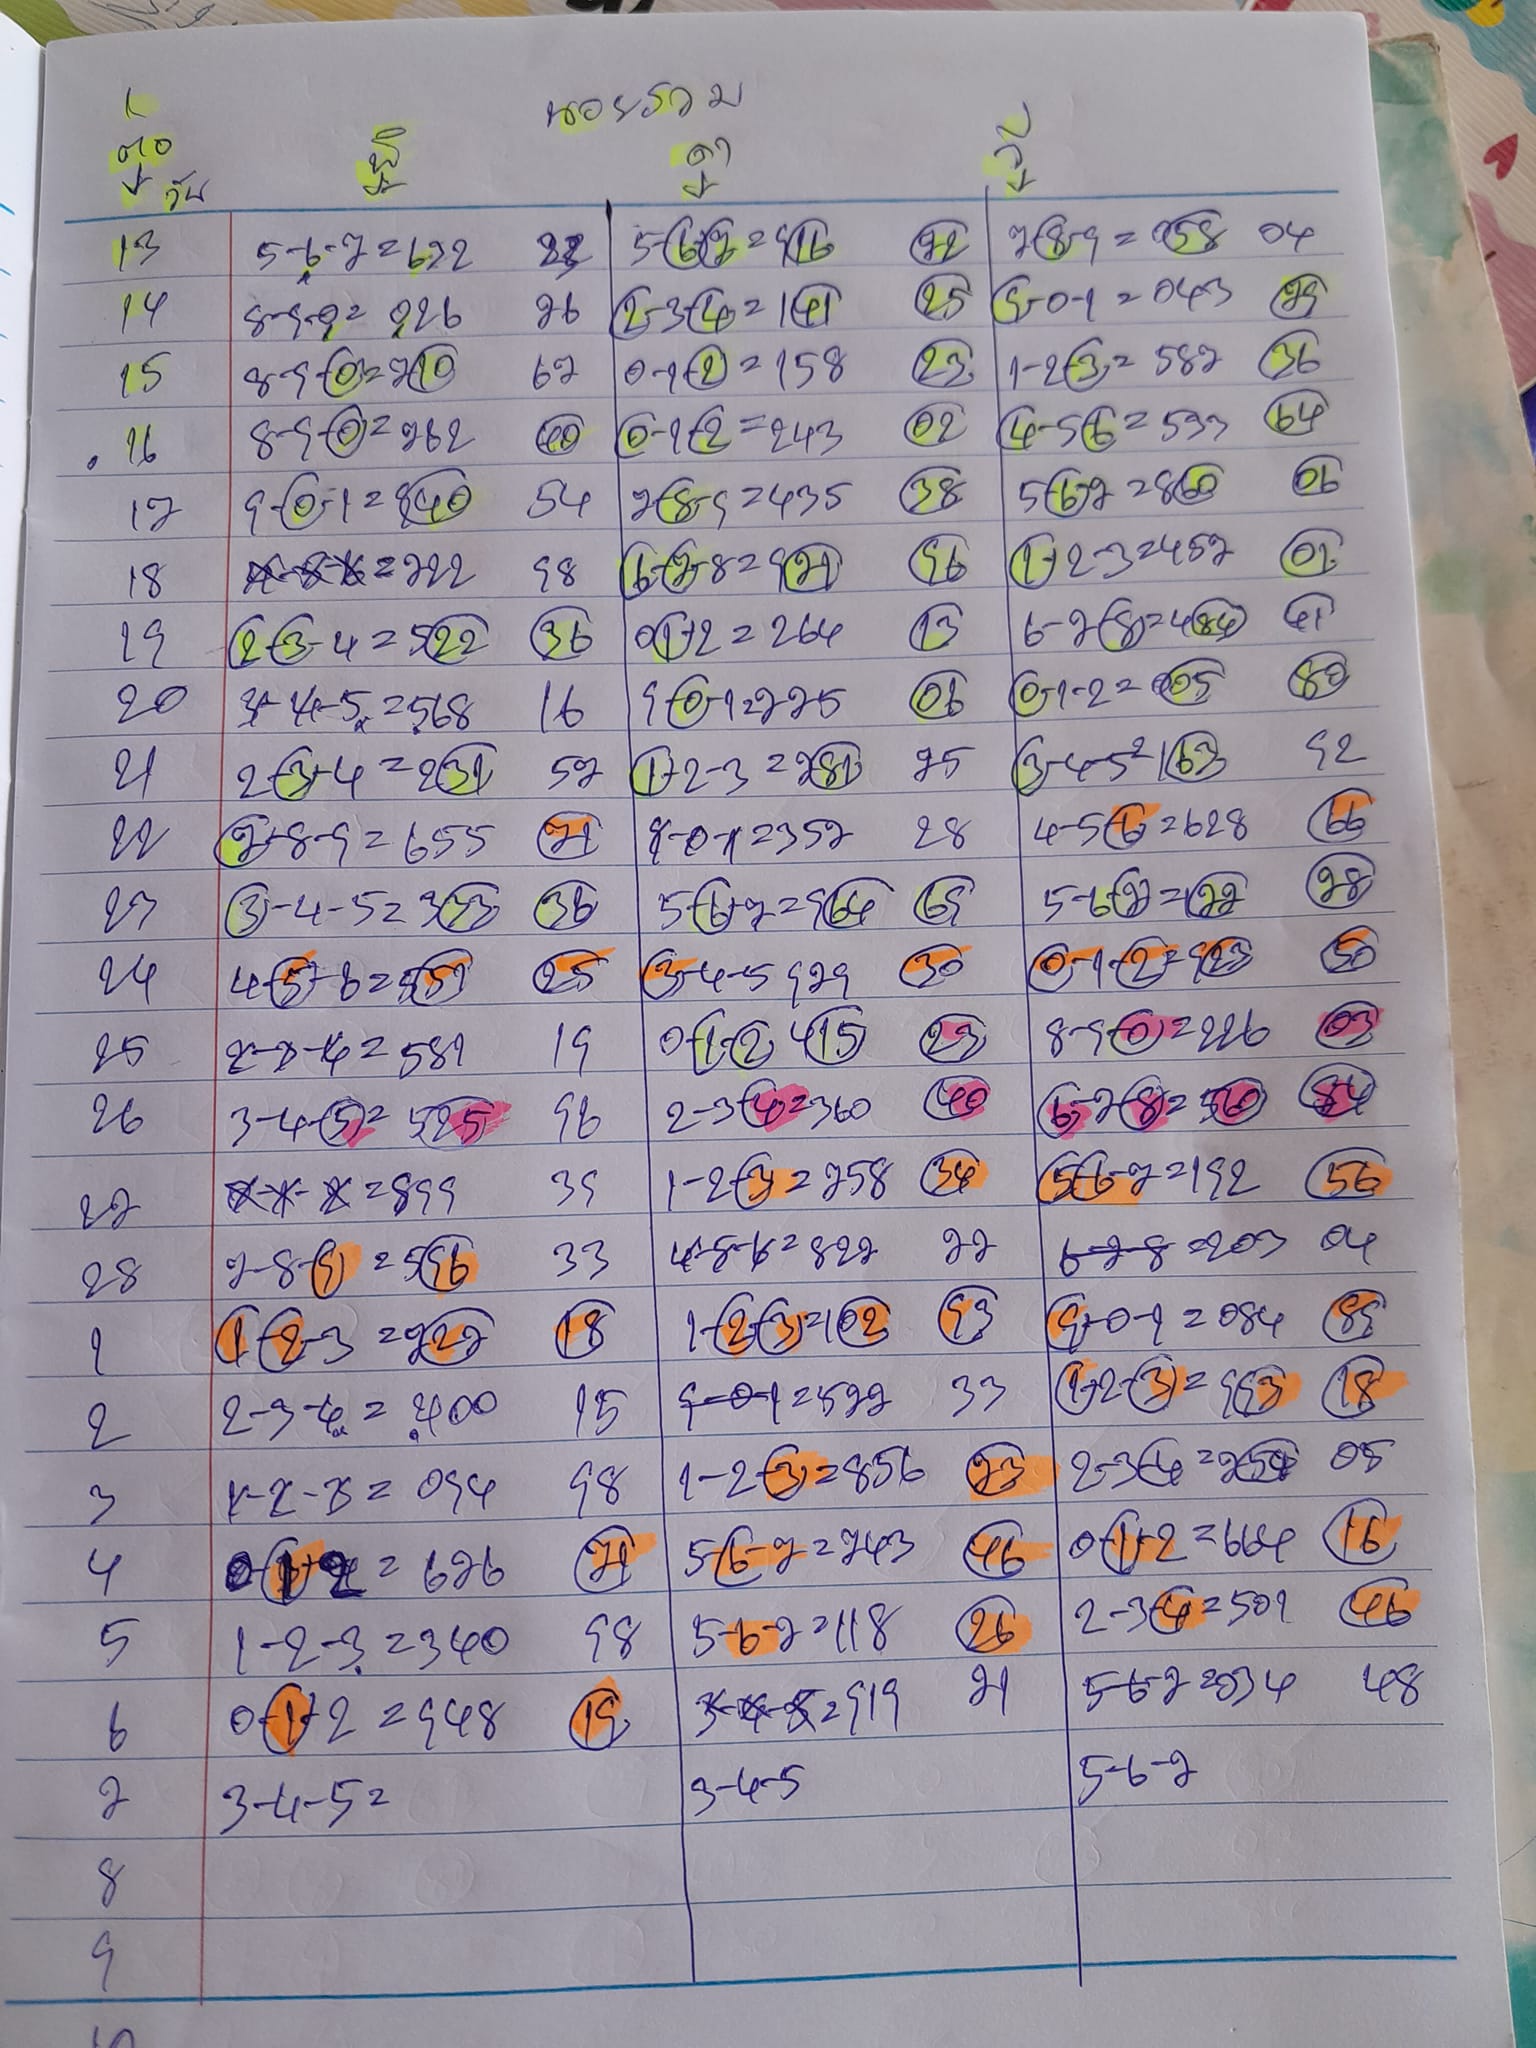 หอยรวม
วัน
13 5-6-7=672 5-6-7=916 72 7-8-9=058 04
14 8-9-0= 226 26 2-3-4=141 25 9-0-1=043 79
15 8-9-0=710 67 0-1-2=158 23 1-2-3=587 36
16 8-9-0=762 40 0-1-2=243 02 4-5-6=533 64
17 9-0-1=840 54 7-8-9=435 38 5-6-7=860 06
18 =722 98 6-7-8=971 96 1-2-3=457 01
19 2-3-4=522 36 0-1-2=264 13 6-7-8=484 41
20 3-4-5=568 16 9-0-1=775 06 0-1-2=005 80
21 2-3-4=231 57 1-2-3=781 75 3-4-5=163 92
22 7-8-9=655 71 9-0-1=357 28 4-5-6=628 66
23 3-4-5=333 36 5-6-7=964 69 5-6-7=177 78
24 4-5-6=551 25 3-4-5 979 30 0-1-2=923 50
25 2-3-4=581 19 0-1-2 415 23 8-9-0=226 03
26 3-4-5=525 96 2-3-4=360 40 6-7-8=560 84
27 =899 39 1-2-3=758 34 5-6-7=192 56
28 7-8-9=596 33 4-5-6=827 77 6-7-8=203 04
1 1-2-3=727 18 1-2-3=102 93 9-0-1=084 89
2 2-3-4=400 15 9-0-1=577 33 1-2-3=993 18
3 1-2-3=094 98 1-2-3=856 73 2-3-4=754 05
4 0-1-2=676 71 5-6-7=743 46 0-1-2=664 16
5 1-2-3=340 98 5-6-7=118 26 2-3-4=501 46
6 0-1-2=948 19 3-4-5=919 71 5-6-7=034 48
7 3-4-5= 3-4-5 5-6-7
8
9
10